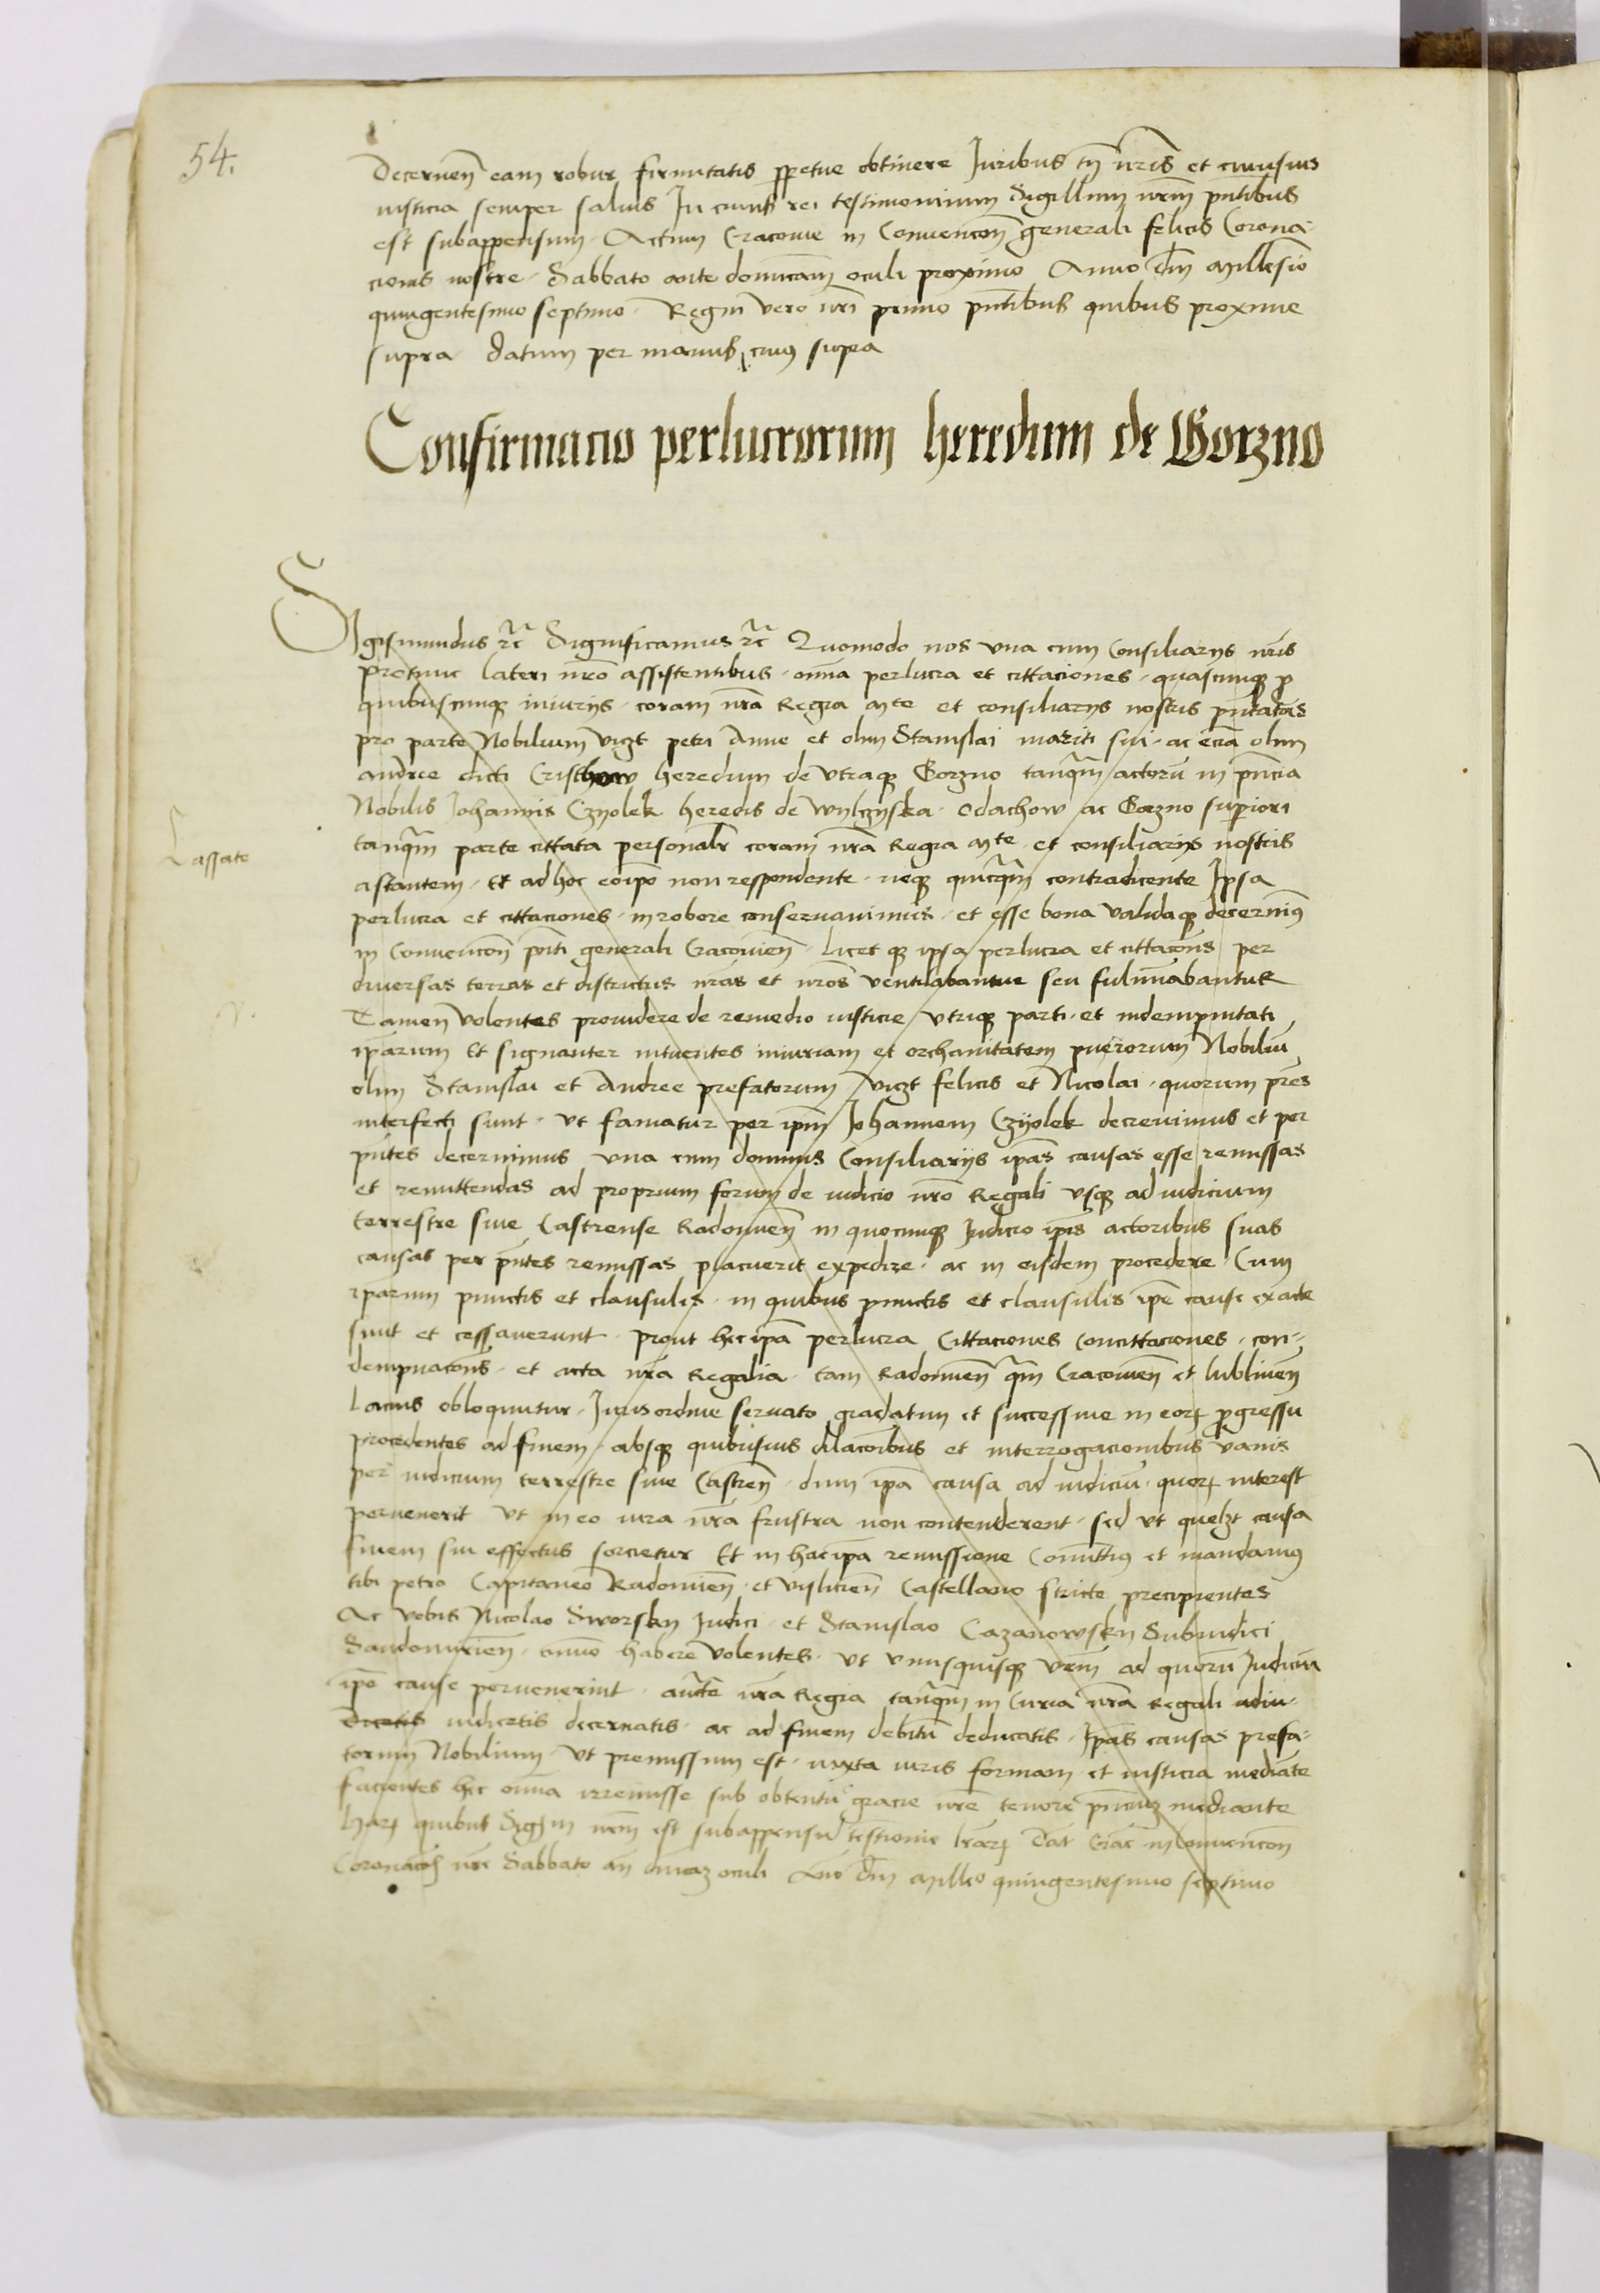 54.
Decernen eam robur firmitatis ppetue obtinere Juribus tn nris et cuiusuis
iusticia semper saluis In cuius rei testimonium Sigillum nrm pntibus
est subappensum. Actum Cracouie in Conuencon generali felicis Corona-
cionis nostre. Sabbato ante dominicam oculi proximo Anno dni Millesio
quingentesimo septimo. Regni vero nri primo pntibus quibus proxime
supra datum per manus cuius supra
Confirmacio perlucrorum heredum de Gorzno
Sigismundus rc Significamus rc Quomodo nos vna cum Consiliarijs nris
protunc lateri nro assistentibus. omnia perlucra et cittaciones. quascumque p
quibuscumque iniurijs. coram nra Regia Mte et consiliarijs nostris
pro parte Nobilium vizt petri Anne et olim Stanislai mariti sui. ac ecia olim
andree dicti Cristhow heredum de vtraque Gorzno tanqm actoru in pncia
Nobilis Johannis Czyolek heredis de Wylczyska. Odachow ac Gorzno supiori
Cassate
tanqm parte cittata personalr coram nra Regia Mte. et consiliarijs nostris
astantem. Et ad hoc eoipo non respondente. neque quicqm contradicente Ipsa
perlucra et cittaciones. in robore conseruauimus. et esse bona validaque decernims
in Conuencon pnti generali Cracouien. licet que ipsa perlucra et cittacons per
diuersas terras et districtus nras et nros ventilabantur seu fulminabantur
Tamen volentes prouidere de remedio iusticie vtrique parti. et indempnitati
iparum Et signanter intuentes iniuriam et orphanitatem puerorum Nobiliu
olim Stanislai et Andree prefatorum vizt felicis et Nicolai. quorum pres
interfecti sunt. vt famatur per ipm Johannem Czyolek decreuimus et per
pntes decernimus vna cum dominis Consiliarijs ipas causas esse remissas
et remittendas ad proprium forum de iudicio nro Regali vsque ad iudicium
terrestre siue Castrense Radomien in quocumque Judicio ipis actoribus suas
causas per pntes remissas placuerit expedire. ac in eisdem procedere Cum
iparum punctis et clausulis. in quibus punctis et clausulis ipe cause exacte
sunt et cessauerunt. prout hec ipa perlucra Cittaciones Concittaciones. con-
dempnacons. et acta nra Regalia. tam Radomien qm Cracouien et lublinen
lacius obloquntur. Juris ordine seruato gradatim et successiue in eor pgressu
procedentes ad finem. absque quibusuis dilacoibus et interrogacionibus vanis
per iudicium terrestre siue Castren. dum ipa causa ad iudiciu. quor interest
peruenerit Vt in eo iura nra frustra non contenderent. sed vt quelzt causa
finem sui effectus sorcietur Et in hac ipa remissione Comittims et mandamus
tibi petro Capitaneo Radomien. et vislicien Castellano stricte precipientes
Ac vobis Nicolao Sworsky Judici. et Stanislao Cazanowsky Subiudici
Sandomirien. omnio habere volentes. vt vnusquisque vrm ad quoru Judiciu
ipe cause peruenerint. aucte nra Regia tanqm in Curia nra Regali adiu-
dicetis iudicetis decernatis. ac ad finem debitu deducatis. Ipas causas prefa-
torum Nobilium. vt premissum est. iuxta iuris formam et iusticia mediate
facientes hec omnia irremisse sub obtentu gracie nre tenore pncium mediante
Har quibus Sigm nrm est subappensu testionie lrar Dat Crac in Conuencon
Coronacois nre Sabbato an dnicaz oculi Ano dni Millo quingentesimo septimo